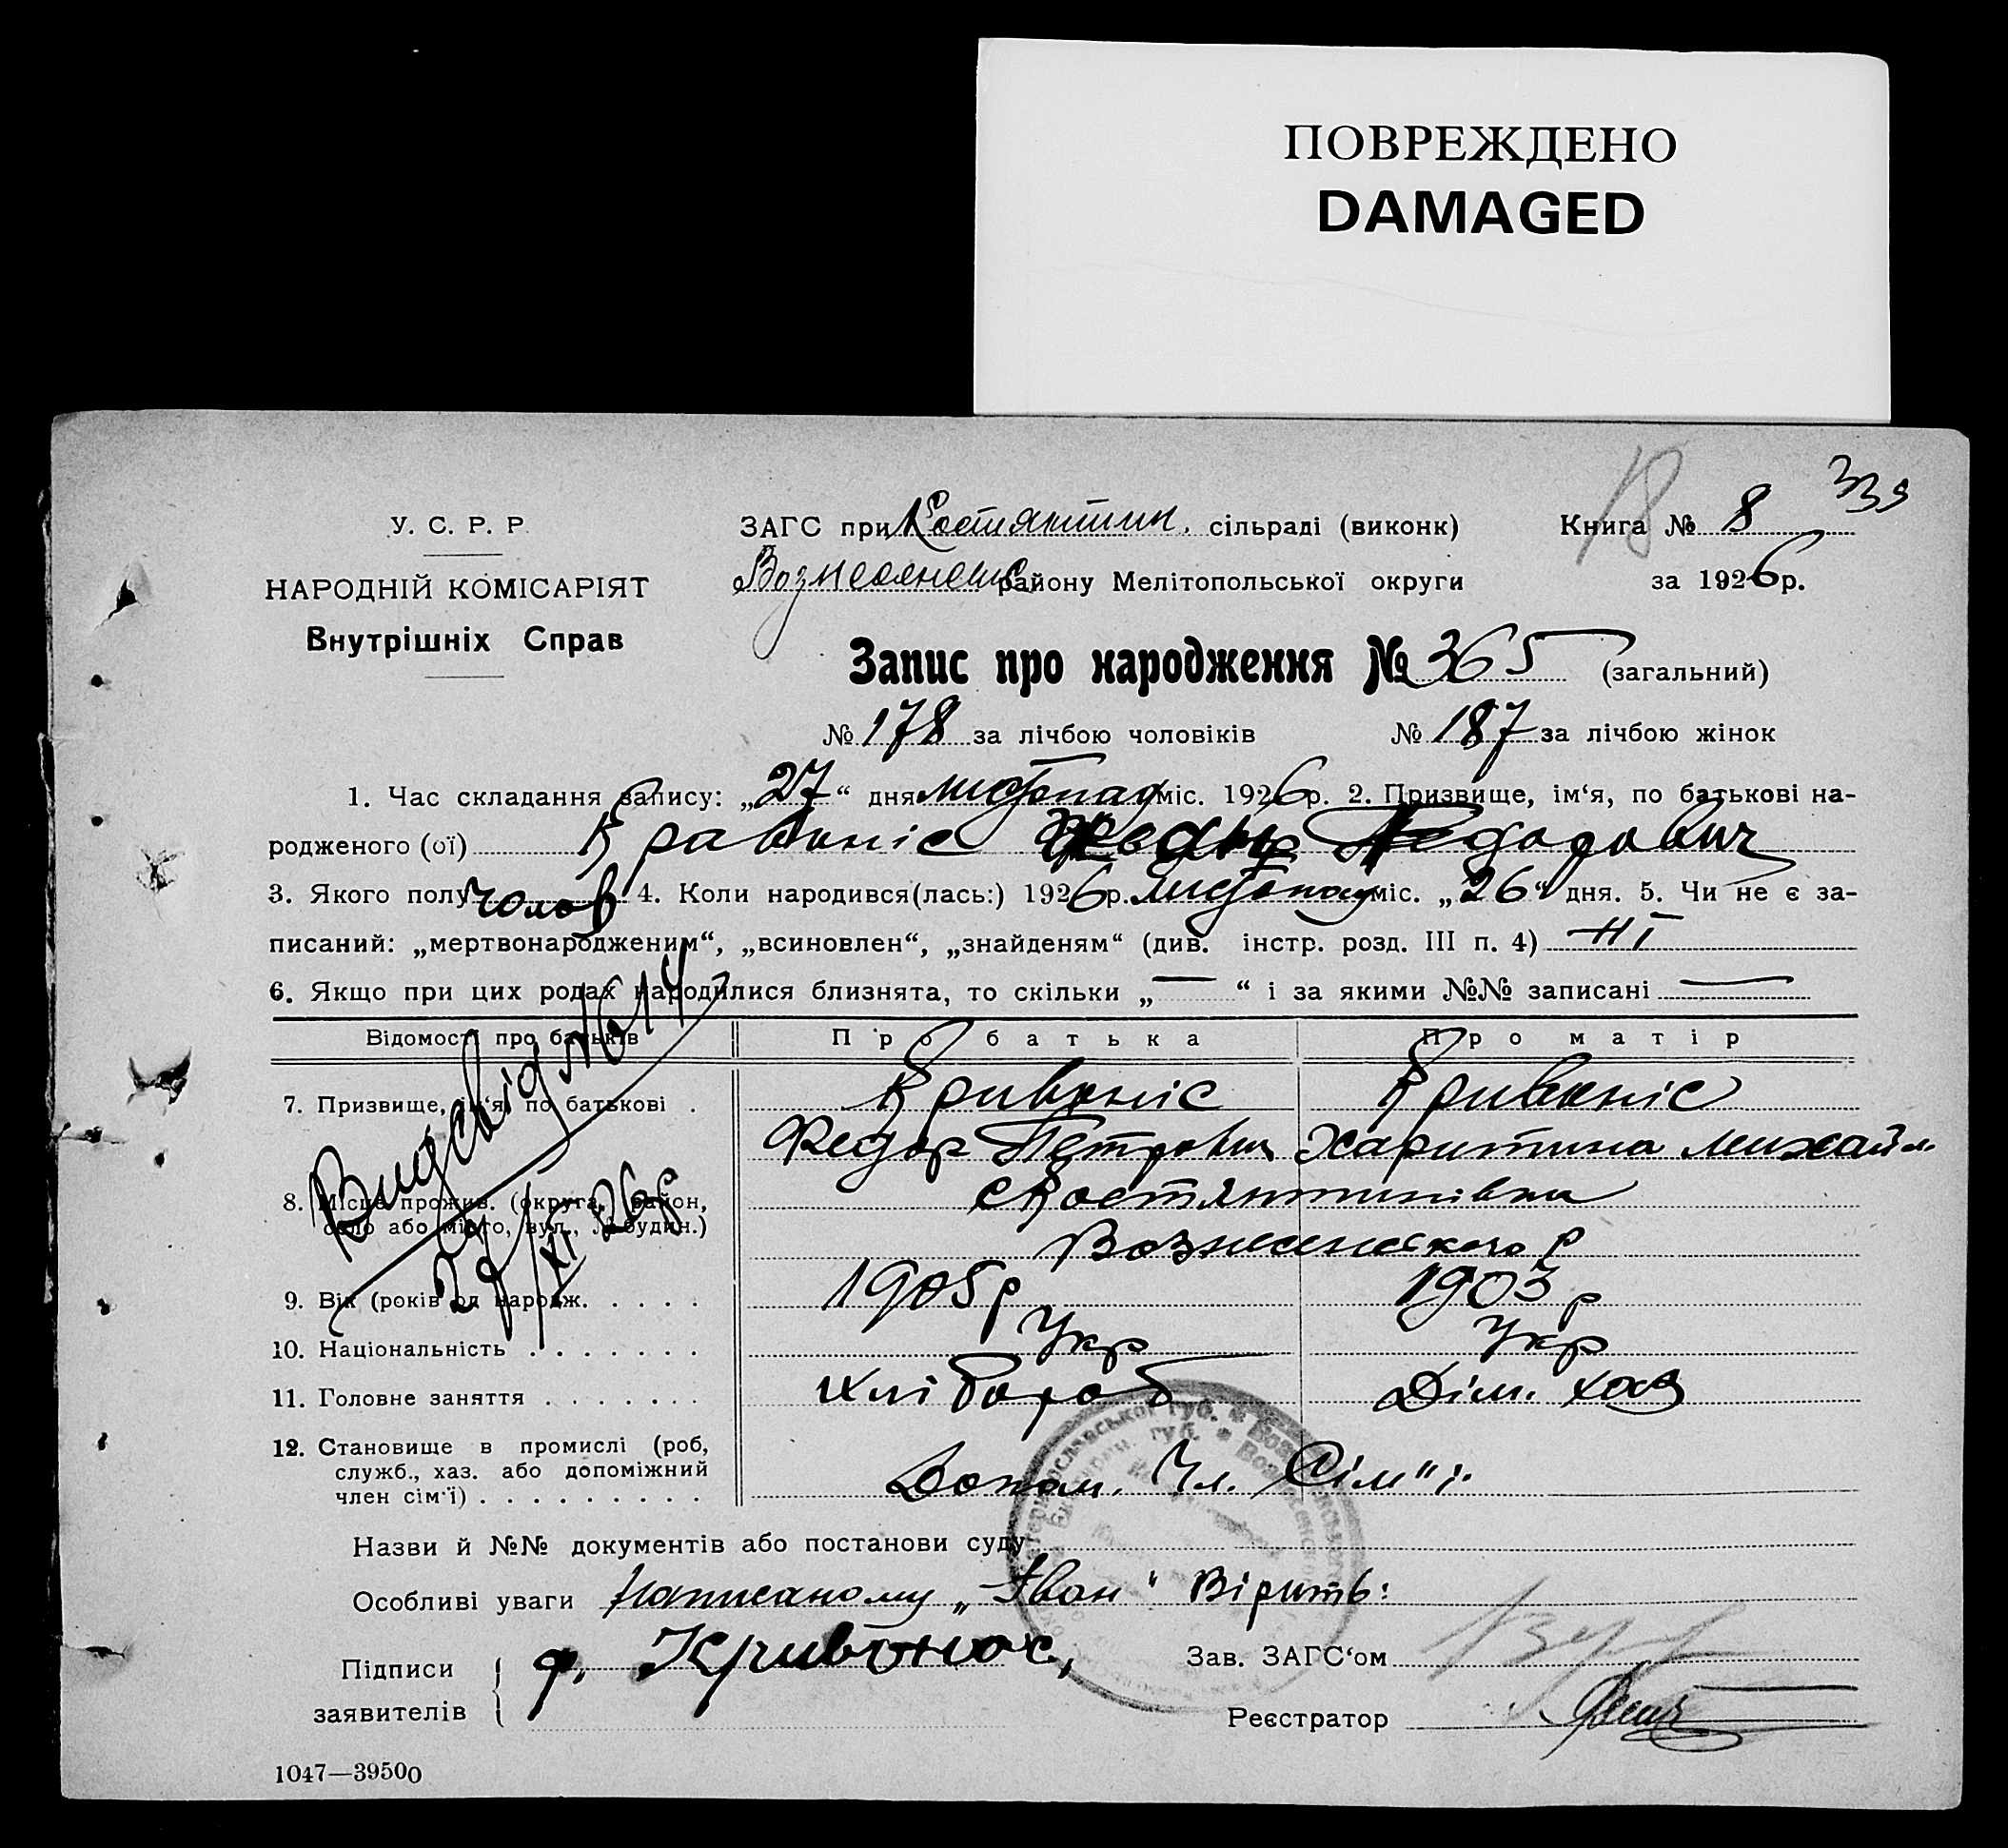 ПОВРЕЖДЕНО
DAMAGED
339
18
У. С. Р. Р.
НАРОДНІЙ КОМІСАРІЯТ
Внутрішніх Справ
ЗАГС при Костянтин. сільраді (виконк)
Вознесенськ району Мелітопольської округи
Книга № 8
за 1926 р.
Запис про народження № 365 (загальний)
№ 178 за лічбою чоловіків № 187 за лічбою жінок
1. Час складання запису: „27“ дня листопад міс. 1926 р. 2. Призвище, ім‘я, по батькові на-
родженого (ої) Кравоніс Федорович
3. Якого полу чолов 4. Коли народився(лась:) 1926 р. листопад міс. „26“ дня. 5. Чи не є за-
писаний: „мертвонародженим“, „всиновлен“, „знайденям“ (див. інстр. розд. III п. 4) НІ
6. Якщо при цих родах народилися близнята, то скільки „—“ і за якими №№ записані —
Відомості про батьків Про батька Про матір
7. Призвище, ім‘я, по батькові . Кривоніс Кривоніс
Федор Петрович Харитина Михайл.
8. Місце прожив. (округа, район, с Костянтинівка
село або місто, вул., № будин.) Вознесенського р
9. Вік (років од народж. . . . . 1905 р 1903 р
10. Національність . . . . . . . Укр Укр
11. Головне заняття . . . . . . . Хлібороб Дім. хоз
12. Становище в промислі (роб,
служб., хаз. або допоміжний
член сім‘ї) . . . . . . . . . Допом. Чл. Сім"ї.
Вид свід № 614
27/XI 26 р
Назви й №№ документів або постанови суду
Особливі уваги Написаному „Іван“ Вірить:
Підписи
заявителів
ф. Кривонос,
Зав. ЗАГС‘ом
Реєстратор
1047—39500